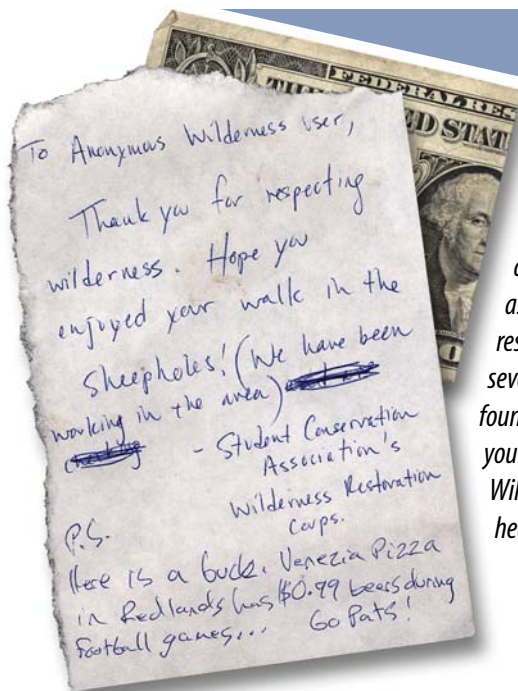 FEDERAL RES
D STAT
To Anonymous Wilderness user,
Thank you for respecting
wilderness. Hope you
enjoyed your walk in the
Sheepholes! (We have been
working in the area)
- Student Conservation
Association's
Wilderness Restoration
Corps.
P.S.
Here is a buck. Venezia Pizza
in Redlands has $0.99 beers during
football games... Go Pats!
as
res
seve
foun
you
Wil
he